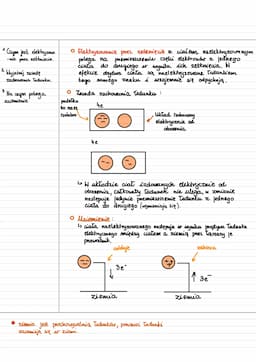 1. Czym jest elektryzowa-
-nie przez zetknięcie.
2. Wyjaśnij zasadę
zachowania ładunku.
3. Na czym polega
uziemienie.
Elektryzowanie przez zetknięcie z ciałem naelektryzowanym
polega na przemieszczeniu części elektronów z jednego
ciała do drugiego w wyniku ich zetknięcia. W
efekcie dotyku ciała są naelektryzowane ładunkiem
tego samego znaku i wzajemnie się odpychają.
Zasada zachowania ładunku:
4e
układ izolowany
elektrycznie od
otoczenia.
4e
↳ W układzie ciał izolowanych elektrycznie od
otoczenia, całkowity ładunek nie ulega zmianie
następuje jedynie przemieszczanie ładunku z jednego
ciała do drugiego
Uziemienie:
↳ ciała naelektryzowanego następuje w wyniku przepływu ładunku
elektrycznego między ciałem a ziemią przez łączący je
przewodnik.
oddaje
pobiera
3e⁻
3e⁻
ziemia
ziemia
ziemia jest przewodnikiem ładunków, ponieważ ładunki